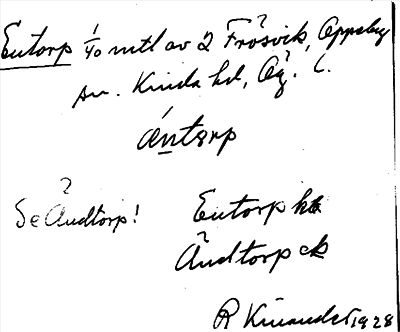 Entorp 1/40 mtl av 2 Frösvik, Oppeby
sn. Kinda hd, Ög. l.
äntorp
Se Ändtorp! Entorp kb
Ändtorp ek
R Kinander 1928